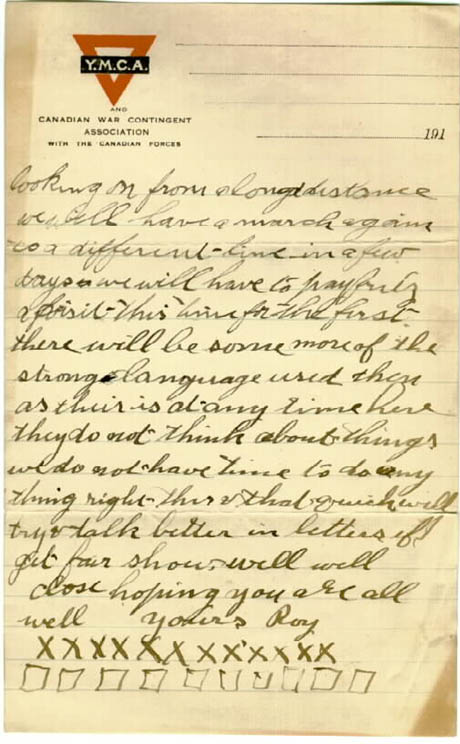 Y.M.C.A.
AND
CANADIAN WAR CONTINGENT
ASSOCIATION
WITH THE CANADIAN FORCES
191
looking on from a long distance
we will have a march again
to a different line in a few
days we will have to pay
a visit this time for the first
there will be some more of the
strong language used then
as their is at any time here
they do not think about things
we do not have time to do any
thing right this & that quick will
try & talk better in letters if I
get fair show. well will
close hoping you are all
well yours Roy
XXXXXXXXXXXX
□□□□□□□□□□□